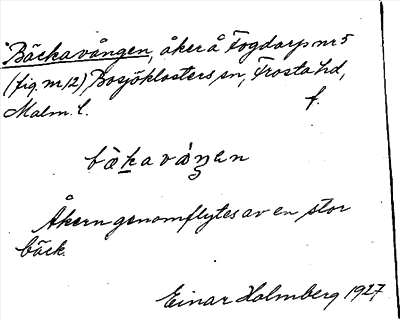 Bäckavången, åker å Fogdarp nr 5
(fig. nr 12) Bosjöklosters sn, Frosta hd,
Malm. l. f.
bàkavåŋen
Åkern genomflytes av en stor
bäck.
Einar Holmberg 1927